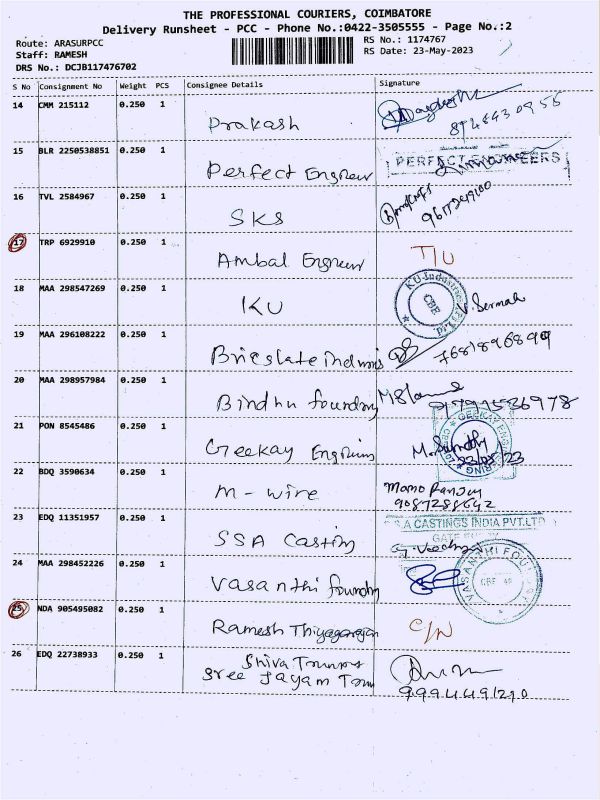 THE PROFESSIONAL COURIERS, COIMBATORE
Delivery Runsheet - PCC - Phone No.:0422-3505555 - Page No.:2
Route: ARASURPCC
Staff: RAMESH
DRS No.: DCJB117476702
RS No.: 1174767
RS Date: 23-May-2023
S No Consignment No Weight PCS Consignee Details Signature
14 CMM 215112 0.250 1
Prakash
15 BLR 2250538851 0.250 1
Perfect Engneer
PERFECT ENGINEERS
16 TVL 2584967 0.250 1
SKS
17 TRP 6929910 0.250 1
Ambal Engneer T/U
18 MAA 298547269 0.250 1
KU
KU Industries
CBE
V. Sermah
19 MAA 296108222 0.250 1
20 MAA 298957984 0.250 1
Bindhu foundry
21 PON 8545486 0.250 1
Geekay
22 BDQ 3590634 0.250 1
M - wire
9087288642
23 EDQ 11351957 0.250 1
SSA Casting
S A CASTINGS INDIA PVT.LTD
24 MAA 298452226 0.250 1
Vasanthi foundry
VASANTHI FOUNDRY
25 NDA 905495082 0.250 1
Ramesh Thiyagarajan C/N
26 EDQ 22738933 0.250 1
Shiva
Sree Jayam
9994491210